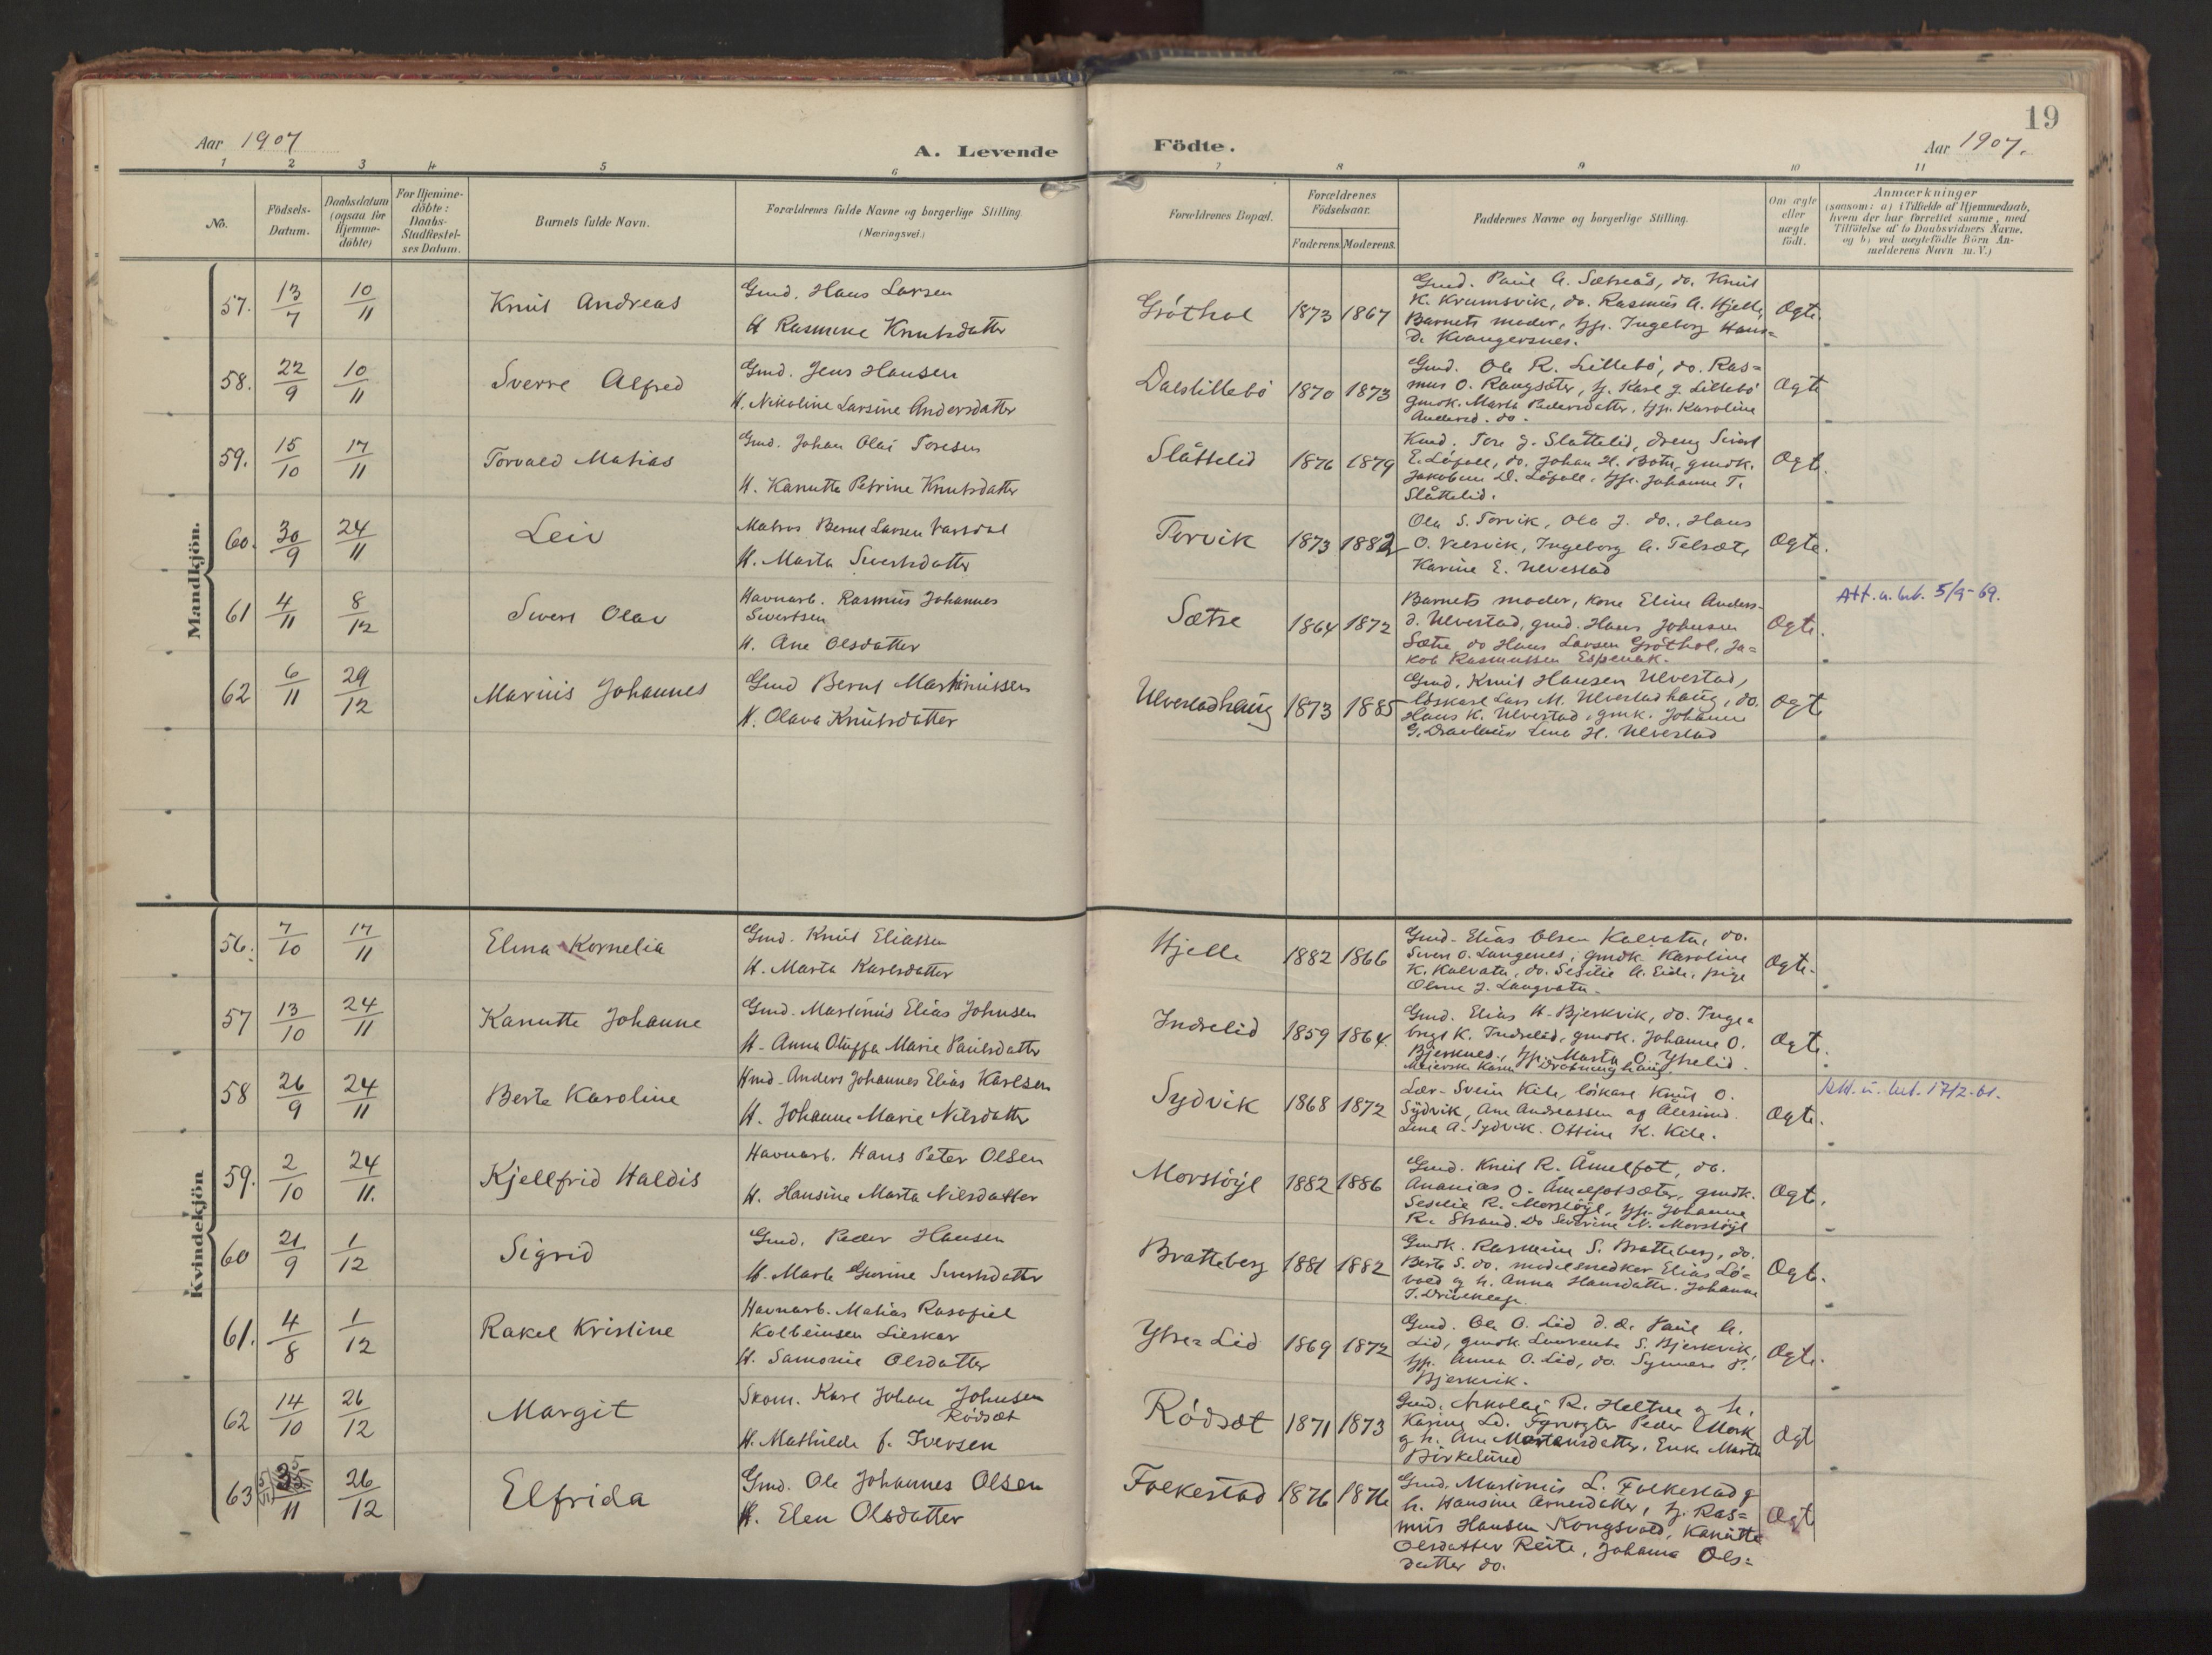 19
Aar 1907
A. Levende
Födte.
Aar 1907.
1 2 3 4 5 6 7 8 9 10 11
No.
Födsels-
Datum.
Daabsdatum
(ogsaa for
Hjemme-
döbte)
For Hjemme-
döbte:
Daabs-
Stadfæstel-
ses Datum.
Barnets fulde Navn.
Forældrenes fulde Navne og borgerlige Stilling.
(Næringsvei.)
Forældrenes Bopæl.
Forældrenes
Födselsaar.
Faderens.
Moderens.
Faddernes Navne og borgerlige Stilling.
Om ægte
eller
uægte
födt.
Anmærkninger
(saasom: a) i Tilfælde af Hjemmedaab,
hvem der har forrettet samme, med
Tilföielse af to Daabsvidners Navne.
og b) ved uægtefödte Börn An-
melderens Navn m. V.)
Mandkjön.
57. 13/7 10/11
Knut Andreas
Gmd. Hans Larsen
H. Rasmine Knutsdatter
Gróthol
1873 1867
Gmd. Paul A. Sætreås, do. Knut
K. Krumsvik, do. Rasmus A. Hjelle,
Barnets moder, pp. Ingeborg Hans=
d. Kvangersnes.
Ogte.
58. 22/9 10/11
Sverre Alfred
Gmd. Jens Hansen
H. Nikoline Larsine Andersdatter
Dalslillebó
1870 1873
Gmd. Ole R. Lillebó, do. Ras=
mus O. Raugsæter, Karl J. Lillebó
gmdk. Marta Pedersdatter, pp. Karoline
Andersd. do.
Ogte
59. 15/10 17/11
Torvald Matias
Gmd. Johan Olai Toresen
H. Kanutte Petrine Knutsdatter
Slåttelid
1876 1879
Tore J. Slåttelid, dreng Sivert
E. Lófoll, do. Johan H. Botn, gmdk.
Jakobine D. Lófoll, pp. Johanne T.
Slåttelid.
Ogte.
60. 30/9 24/11
Leiv
Matros Bernt Larsen Vartdal
H. Marta Sivertsdatter
Torvik
1873 1882
Ola S. Torvik, Ola J. do., Hans
O. Velsvik, Ingeborg A.
Karine E. Ulvestad
Ogte.
61 4/11 8/12
Sivert Olav
Havnarb. Rasmus Johannes
Sivertsen
H. Ane Olsdatter
Sætre
1864 1872
Barnets moder, kone Eline Anders-
d. Ulvestad, gmd. Hans Johnsen
Sætre do Hans Larsen Gróthol, Ja=
kob Rasmussen Espenak.
Ogte.
Att. u. 5/9-69.
62 6/11 29/12
Marius Johannes
Gmd Bernt Martinussen
H. Olava Knutsdatter
Ulvestadhaug
1873 1885
Gmd. Knut Hansen Ulvestad,
lóskarl Lars M. Ulvestadhaug, do.
Hans K. Ulvestad, gmk. Johanne
G. Lina H. Ulvestad
Ogte
Kvindekjön
56. 7/10 17/11
Elina Kornelia
Gmd. Knut Eliassen
H. Marta Karlsdatter
Hjelle
1882 1866
Gmd. Elias Olsen Kalvatn, do.
Sivert O. Langenes, gmdk. Karoline
K. Kalvatn, do. Sesilie A. Eide, pige
Oline J. Langvatn.
Ogte.
57 13/10 24/11
Kanutte Johanne
Gmd. Martinus Elias Johnsen
H. Anna Oluffa Marie Paulsdatter
Indrelid
1859 1864
Gmd. Elias H. Bjerkvik, do. Inge=
brigt K. Indrelid, gmdk. Johanne O.
Bjerknes, pp. Marta O. Ytrelid.
Meierske Karen P. Dravninghaug.
Ogte.
58 26/9 24/11
Berte Karoline
Hmd. Anders Johannes Elias Karlsen
H. Johanne Marie Nilsdatter
Sydvik
1868 1872
Lær. Svein Kile, lóskarl Knut O.
Sydvik, Ane Andreassen af Ålesund.
Lina A. Sydvik. Ottine K. Kile.
Ogte.
Att. u. 17/2-61.
59. 2/10 24/11.
Kjellfrid Haldis
Havnarb. Hans Peter Olsen
H. Hansine Marta Nilsdatter
Morstöyl
1882 1886
Gmd. Knut R. Åmelfot, do.
Ananias O. Åmelfotsæter, gmdk.
Sesilie R. Morstöyl, pp. Johanne
R. Strand. Do Severine N. Morstöyl
Ogte.
60 21/9 1/12
Sigrid
Gmd. Peder Hansen
H. Marte Gurine Sivertsdatter
Bratteberg
1881 1882
Gmdk. Rasmine S. Bratteberg, do.
Berte S. do. modelsnedker Elias Ló=
vold og h. Anna Hansdatter. Johanne
J. Driveklep.
Ogte.
61. 4/8 1/12
Rakel Kristine
Havnarb. Matias Rasofiel
Kolbeinsen Lieskar
H. Samonie Olsdatter
Ytre Lid
1869 1872
Gmd. Ole O. Lid d.e. Paul A.
Lid, gmdk. Laurentse S. Bjerkvik,
pp. Anna O. Lid, do. Synnere P.
Bjerkvik.
Ogte.
62 14/10 26/12
Margit
Skom. Karl Johan Johnsen
Ródsæt
H. Mathilde f. Iversen
Ródsæt
1871 1873
Gmd. Nikolai R. Heltne og h.
Karine Ld. Fyrvogter Peder Mork
og h. Ane Mortensdatter. Enke Marte
Birkelund
Ogt
63 5/11 26/12
Elfrida
Gmd. Ole Johannes Olsen
H. Elen Olsdatter
Folkestad
1876 1876
Gmd. Martinus L. Folkestad og
h. Hansine Arnesdatter, Ras=
mus Hansen Kongsvold, Kanutte
Olsdatter Reite, Johanne Ols=
datter do.
Ogt